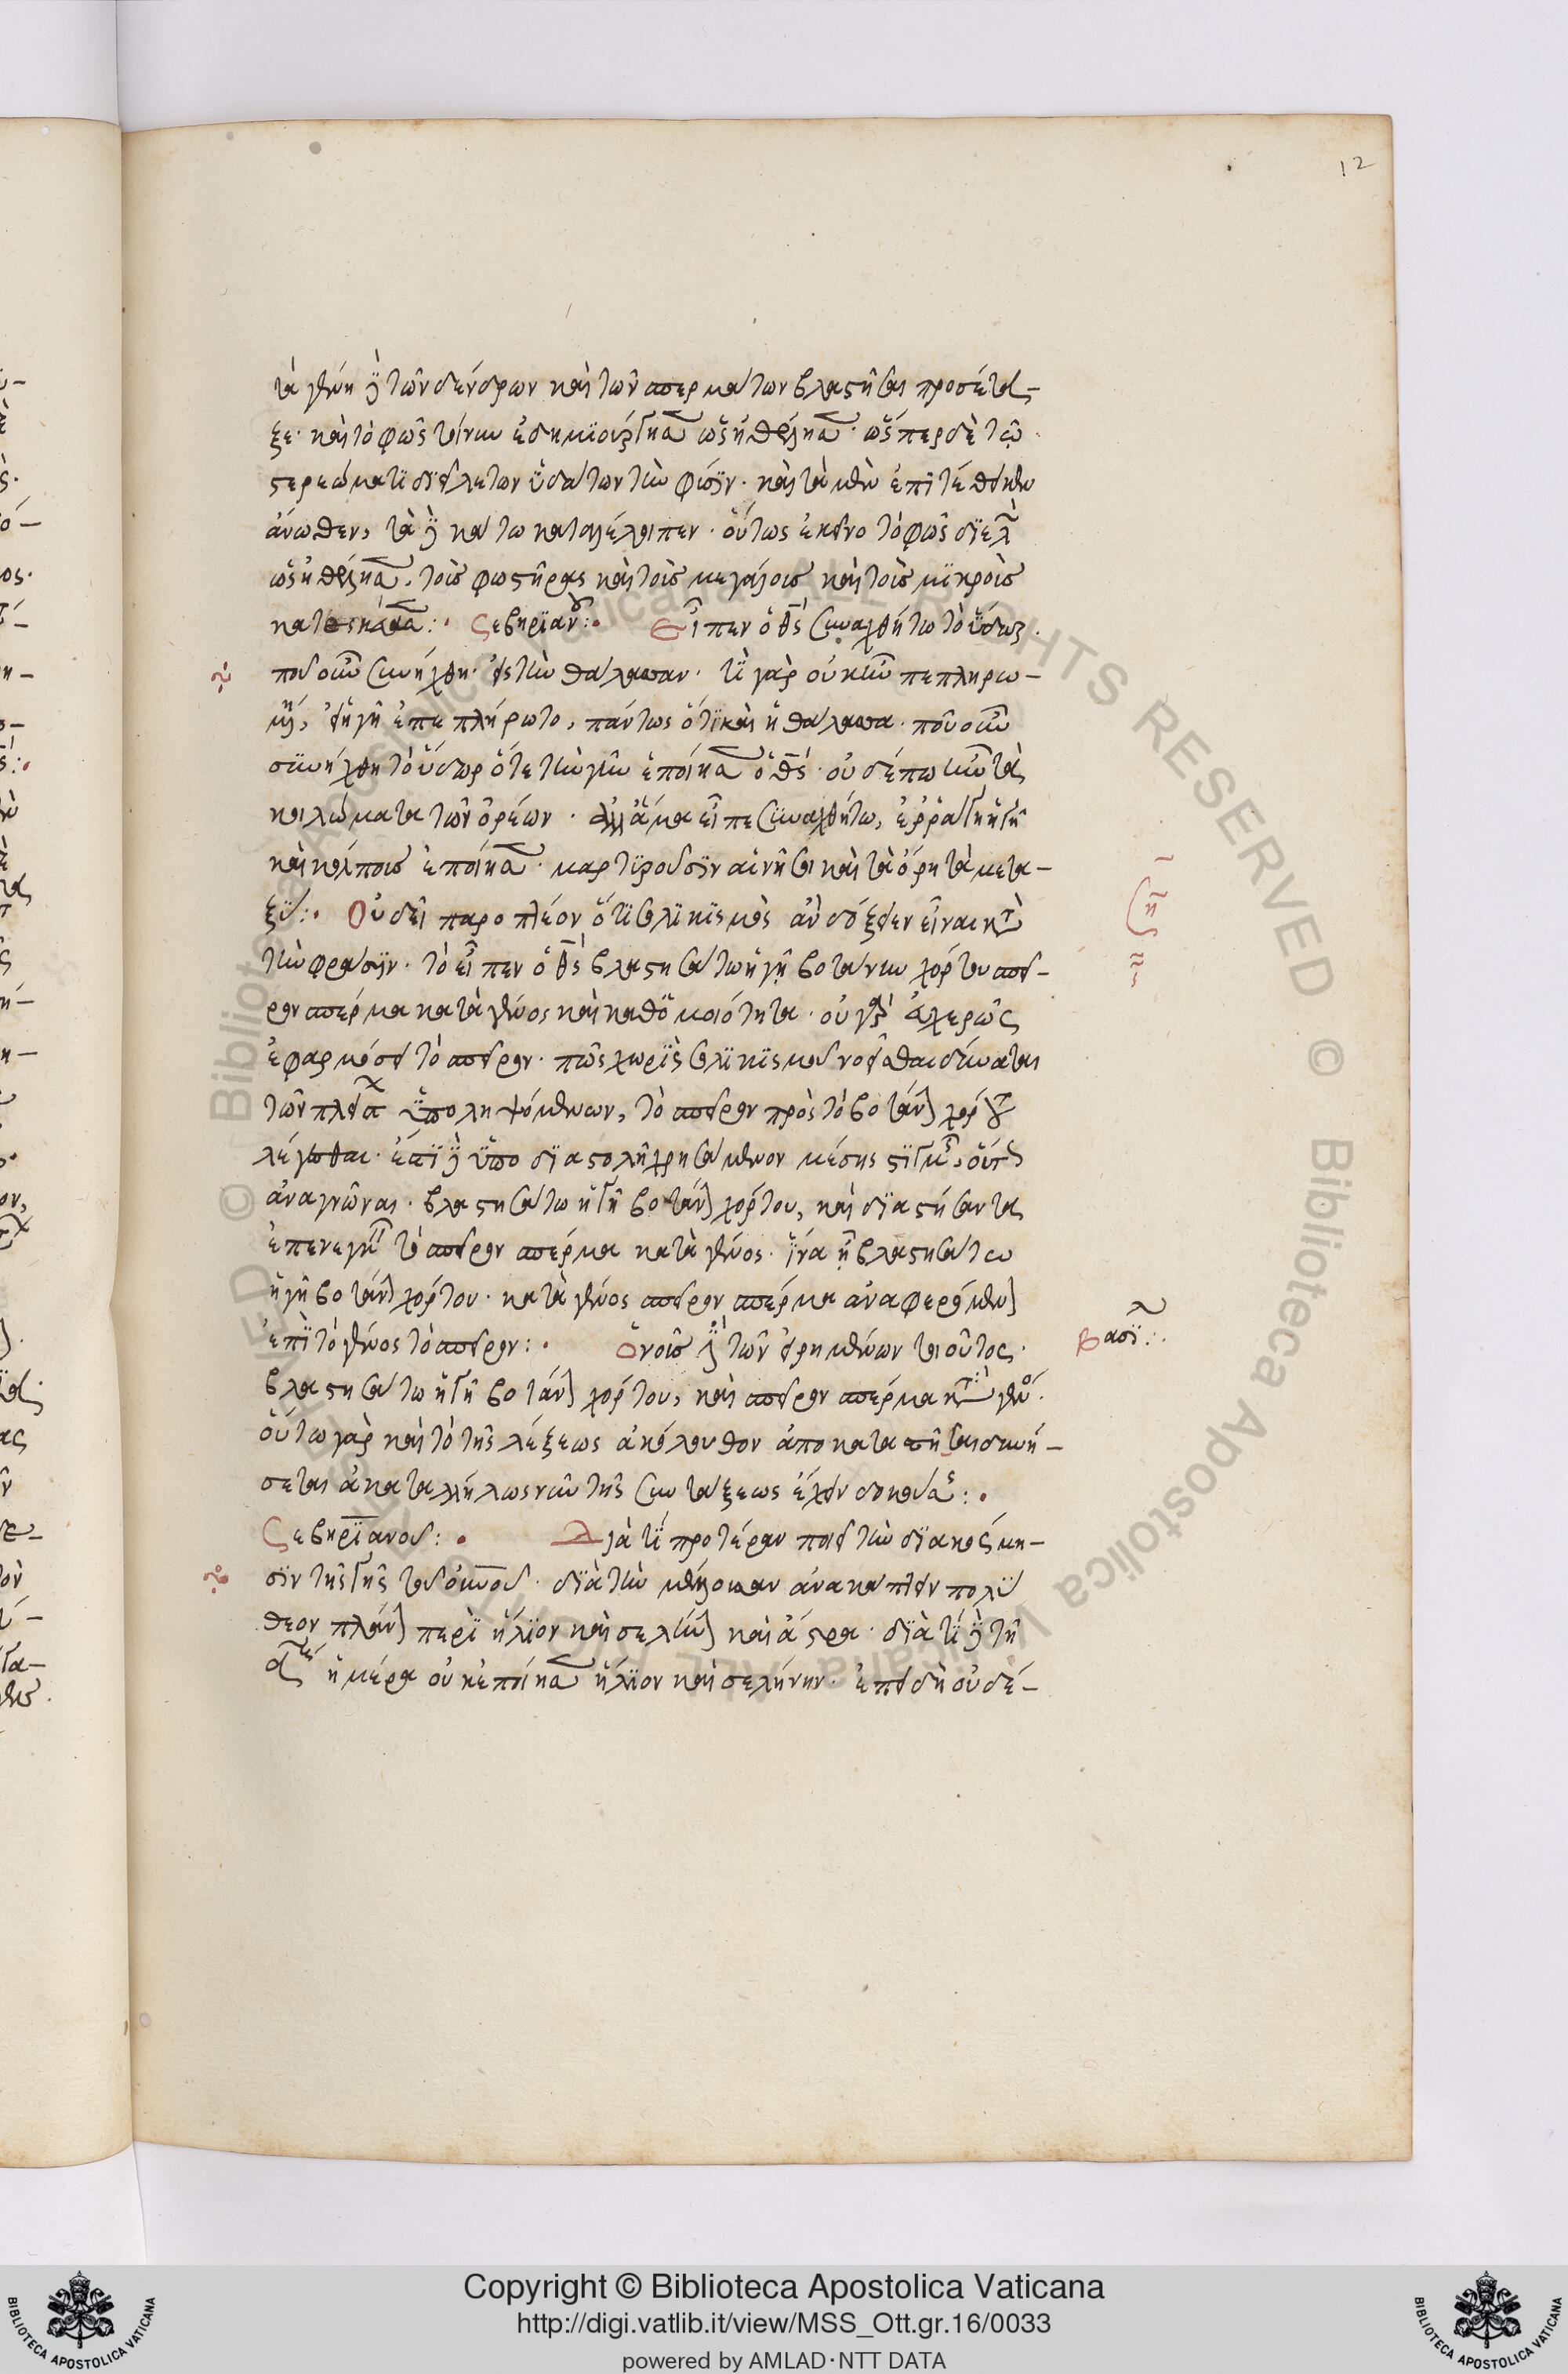 12
τὰ γένη δὲ τῶν δένδρων καὶ τῶν σπερμάτων βλαστῆσαι προσέτα-
ξε· καὶ τὸ φῶς τοίνυν ἐδημιούργησεν ὡς ἠθέλησεν· ὥσπερ δὲ τῷ
στερεώματι διεῖλε τῶν ὑδάτων τὴν φύσιν· καὶ τὰ μὲν ἐπιτέθεικεν
ἄνωθεν, τὰ δὲ κάτω καταλέλοιπεν· οὕτως ἐκεῖνο τὸ φῶς διελὼν
ὡς ἠθέλησεν, τοὺς φωστῆρας καὶ τοὺς μεγάλους καὶ τοὺς μικροὺς
κατεσκεύασεν:· Σεβηριανοῦ:· Εἶπεν ὁ θς συναχθήτω τὸ ὕδωρ·
ποῦ οὖν συνήχθη· εἰς τὴν θάλασσαν· τί γὰρ οὐκ ἦν πεπληρω-
μένη, εἰ ἡ γῆ ἐπεπλήρωτο, πάντως ὅτι καὶ ἡ θάλασσα· ποῦ οὖν
συνήχθη τὸ ὕδωρ ὅτε τὴν γῆν ἐποίησεν ὁ θς· οὐδέπω ἦν τὰ
κοιλώματα τῶν ὀρέων· ἀλλ' ἅμα εἶπε συναχθήτω, ἐρράγη ἡ γῆ
καὶ κόλπους ἐποίησεν· μαρτυροῦσιν αἱ νῆσοι καὶ τὰ ὄρη τὰ μετα-
ξύ:· Οὐδεὶ παρο πλέον ὅτι σολικισμὸς ἂν δόξειεν εἶναι κατὰ
τὴν φράσιν· τὸ εἶπεν ὁ θς βλαστησάτω ἡ γῆ βοτάνην χόρτου σπεῖ-
ρον σπέρμα κατὰ γένος καὶ καθ' ὁμοιότητα· οὐ γὰρ ἀχερῶς
ἐφαρμόσει τὸ σπεῖρον· πῶς χωρὶς σολικισμοῦ νοεῖσθαι δύναται
τῶν πλείστων ὑποληψομένων, τὸ σπεῖρον πρὸς τὸ βοτάνην χόρτου
λέγεσθαι· ἐπὶ δὲ ὑποδιαστολῇ χρησάμενον μέσης στιγμῆς, οὕτως
ἀναγνῶναι· βλαστησάτω ἡ γῆ βοτάνην χόρτου, καὶ διαστήσαντα
ἐπενεγκεῖν τὸ σπεῖρον σπέρμα κατὰ γένος· ἵνα ᾖ βλαστησάτω
ἡ γῆ βοτάνην χόρτου· κατὰ γένος σπεῖρον σπέρμα ἀναφερόμενον
ἐπὶ τὸ γένος τὸ σπεῖρον:· Ὁ νοῦς δὲ τῶν εἰρημένων τοιοῦτος·
Βασι
βλαστησάτω ἡ γῆ βοτάνην χόρτου, καὶ σπεῖρον σπέρμα κατὰ γένος·
οὕτω γὰρ καὶ τὸ τῆς λέξεως ἀκόλουθον ἀποκαταστῆσαι δυνή-
σεται ἀκαταλλήλως νῦν τῆς συντάξεως ἔχειν δοκούσης:·
Σεβηριανοῦ:· Διὰ τί προτέραν ποιεῖ τὴν διακόσμη-
σιν τῆς γῆς τοῦ οὐνοῦ· διὰ τὴν μέλλουσαν ἀνακάπτειν πολυ
θεον πλάνην περὶ ἥλιον καὶ σελήνην καὶ ἄστρα· διὰ τί δὲ τῇ
α ἡμέρα οὐκ ἐποίησεν ἥλιον καὶ σελήνην· ἐπειδὴ οὐδέ-
Copyright © Biblioteca Apostolica Vaticana
http://digi.vatlib.it/view/MSS_Ott.gr.16/0033
powered by AMLAD·NTT DATA